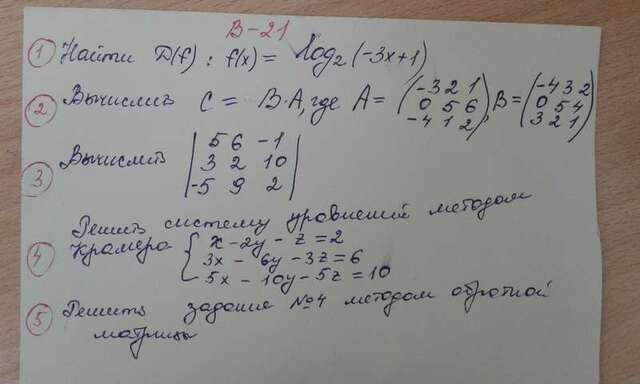 В-21
① Найти D(f): f(x) = log₂(-3x+1)
② Вычислить C = B·A, где A = (-3 2 1; 0 5 6; -4 1 2), B = (-4 3 2; 0 5 4; 3 2 1)
③ Вычислить |5 6 -1; 3 2 10; -5 9 2|
Решить систему уровнений методом
④ Крамера { x - 2y - z = 2
3x - 6y - 3z = 6
5x - 10y - 5z = 10
⑤ Решить задание №4 методом обратной
матрицы